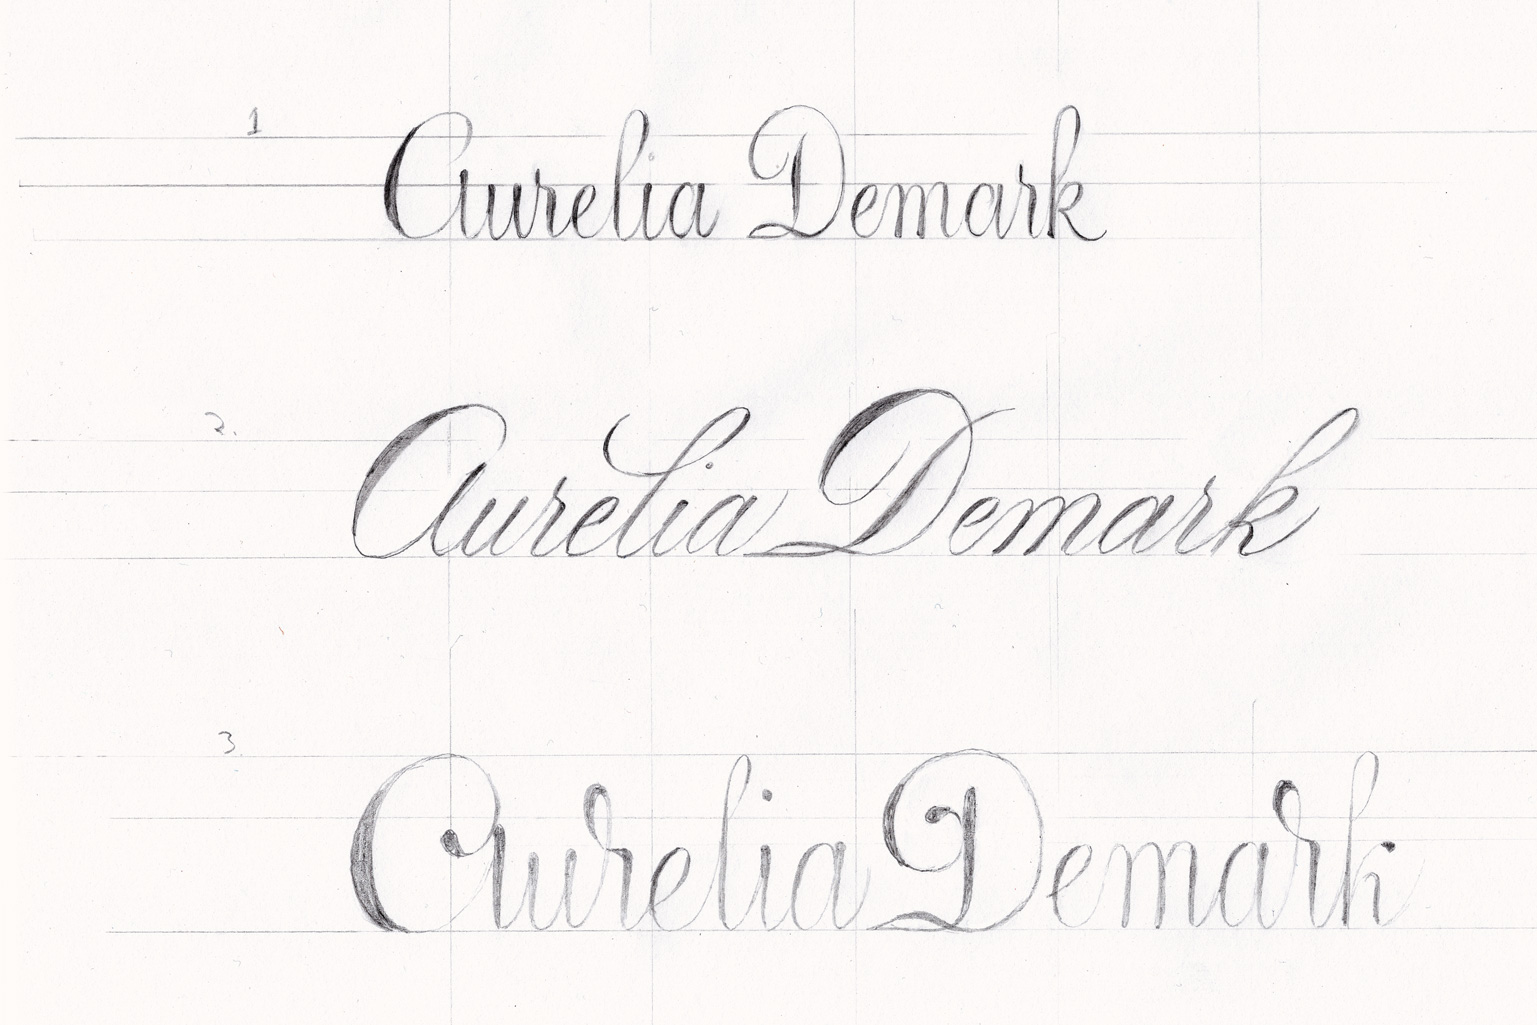 1
Aurelia Demark
2.
Aurelia Demark
3
Aurelia Demark